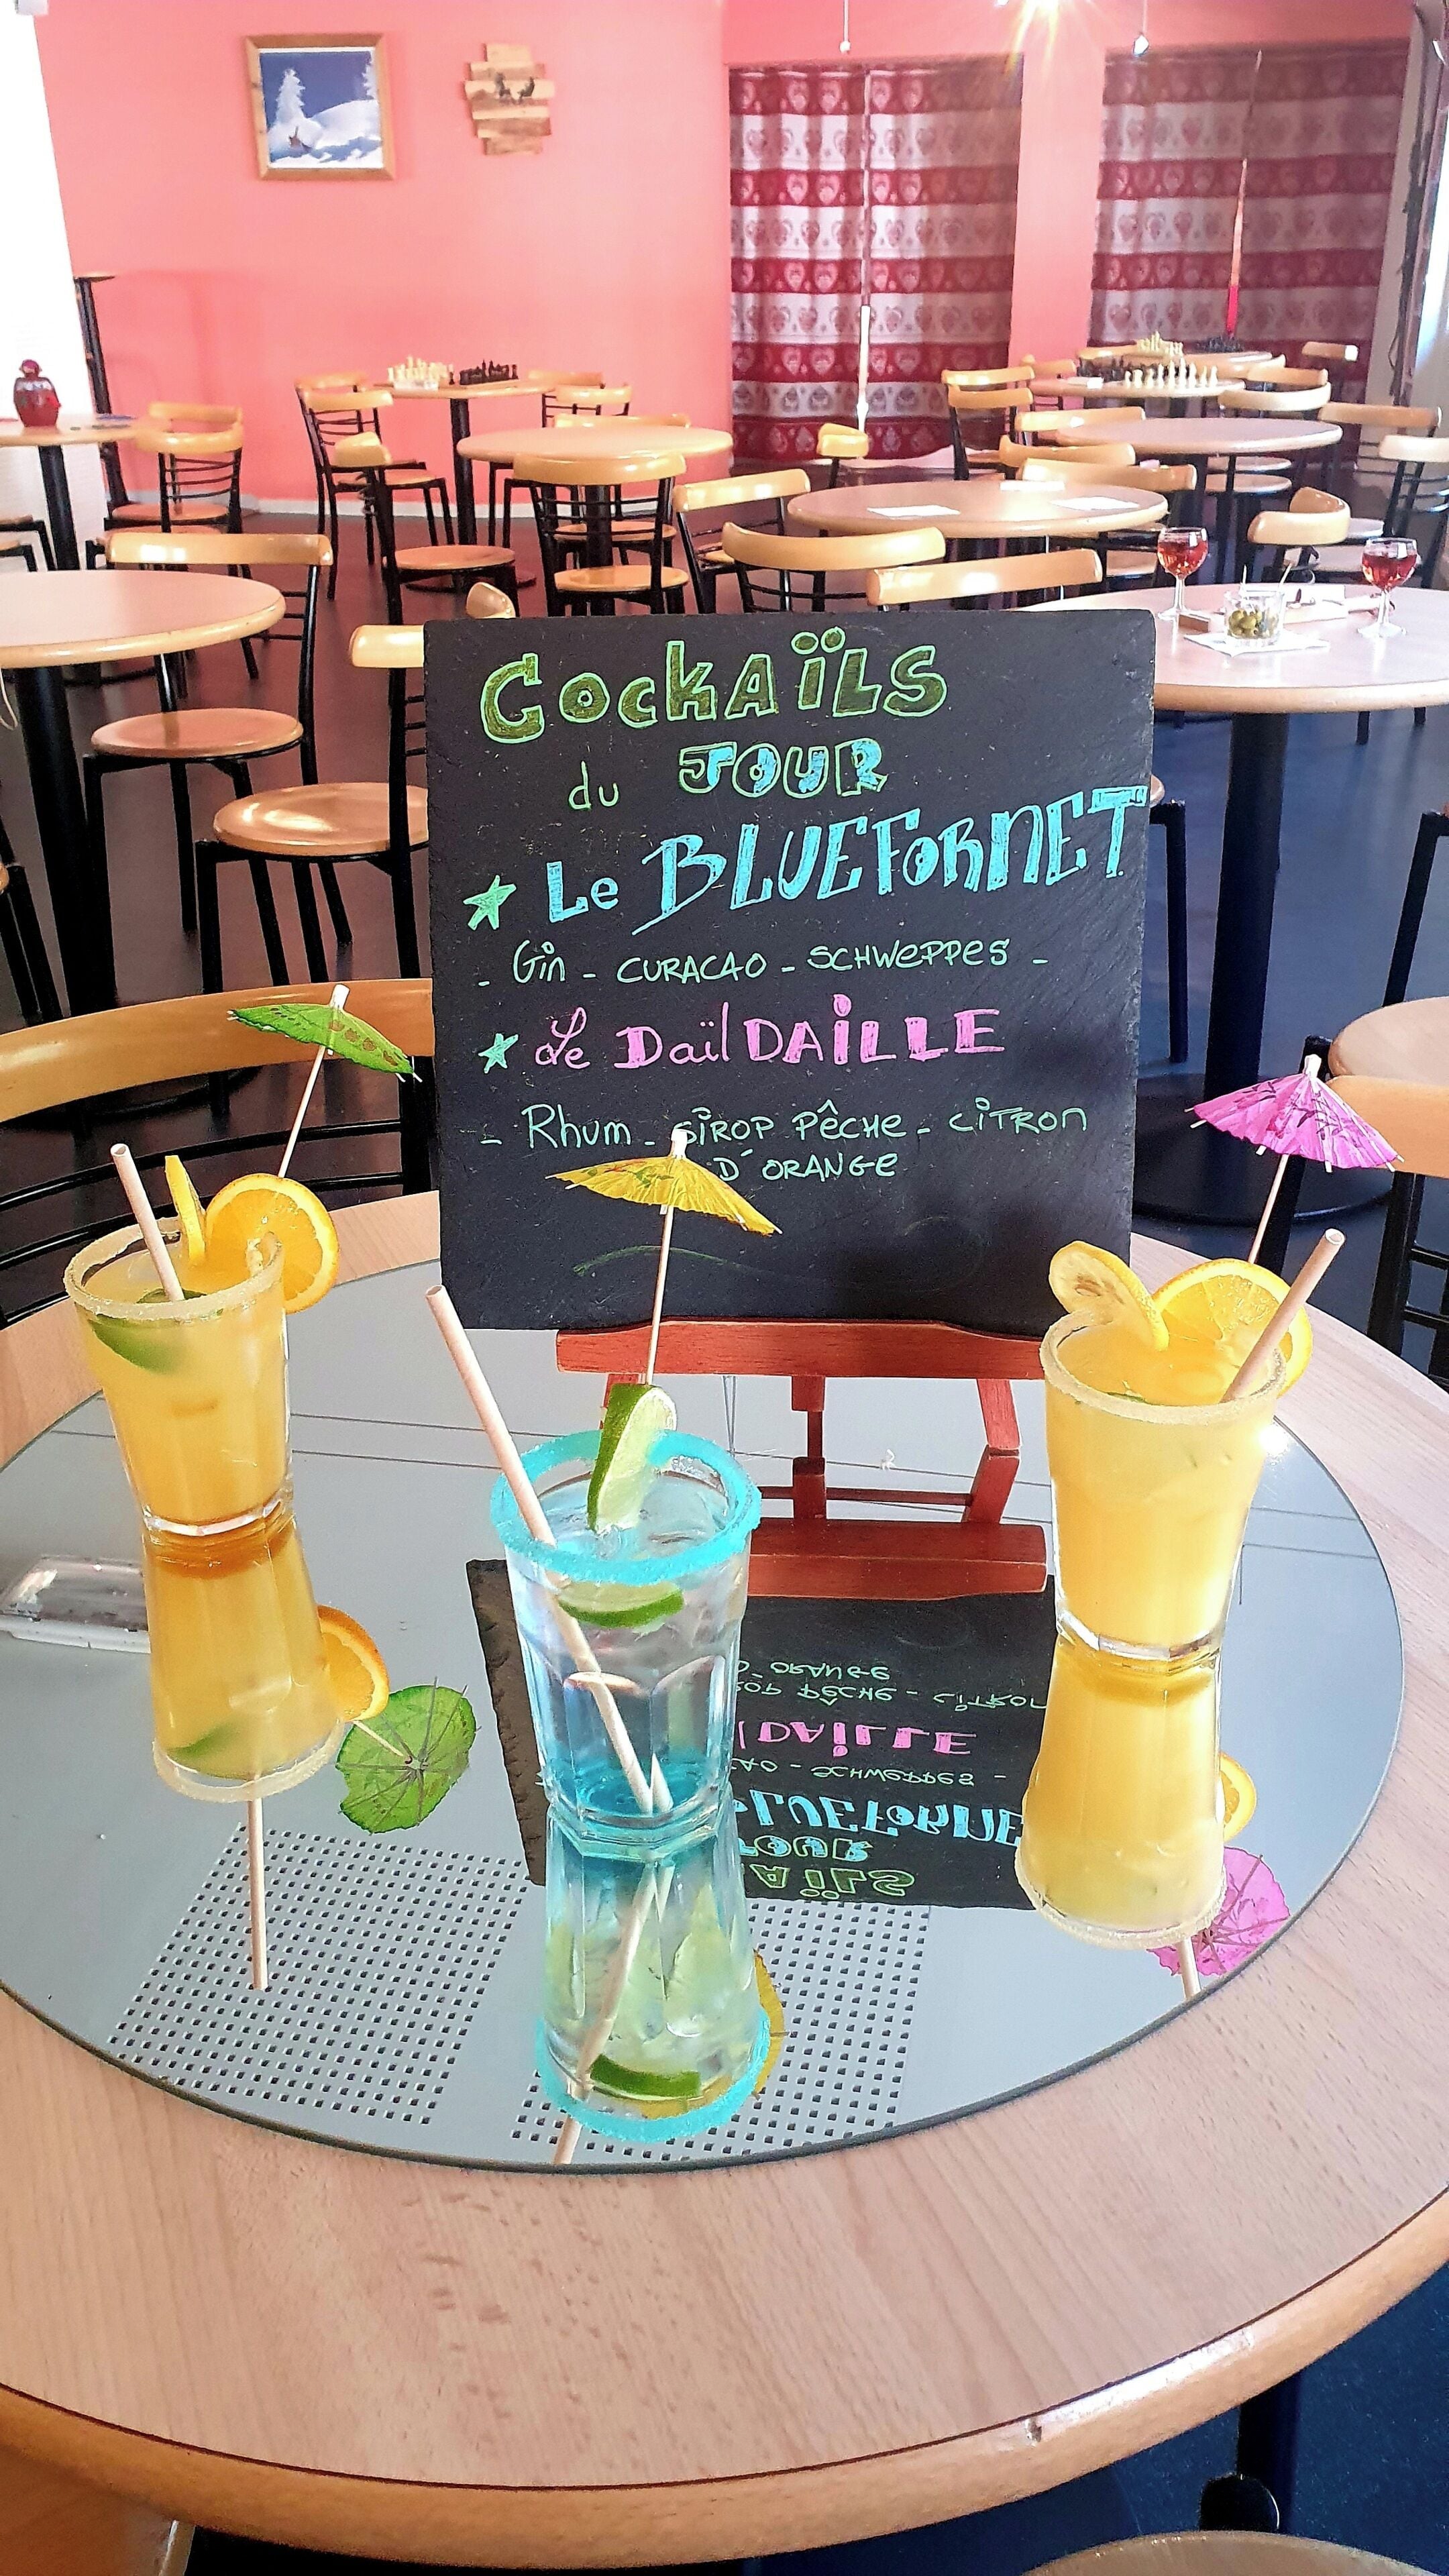 CockAïLS
du JOUR
Le BLUEFORNET
- Gin - CURACAO - SCHWEPPES -
Le DaïlDAiLLE
- Rhum - SiROP PÊCHE - CiTRON
D'ORANGE